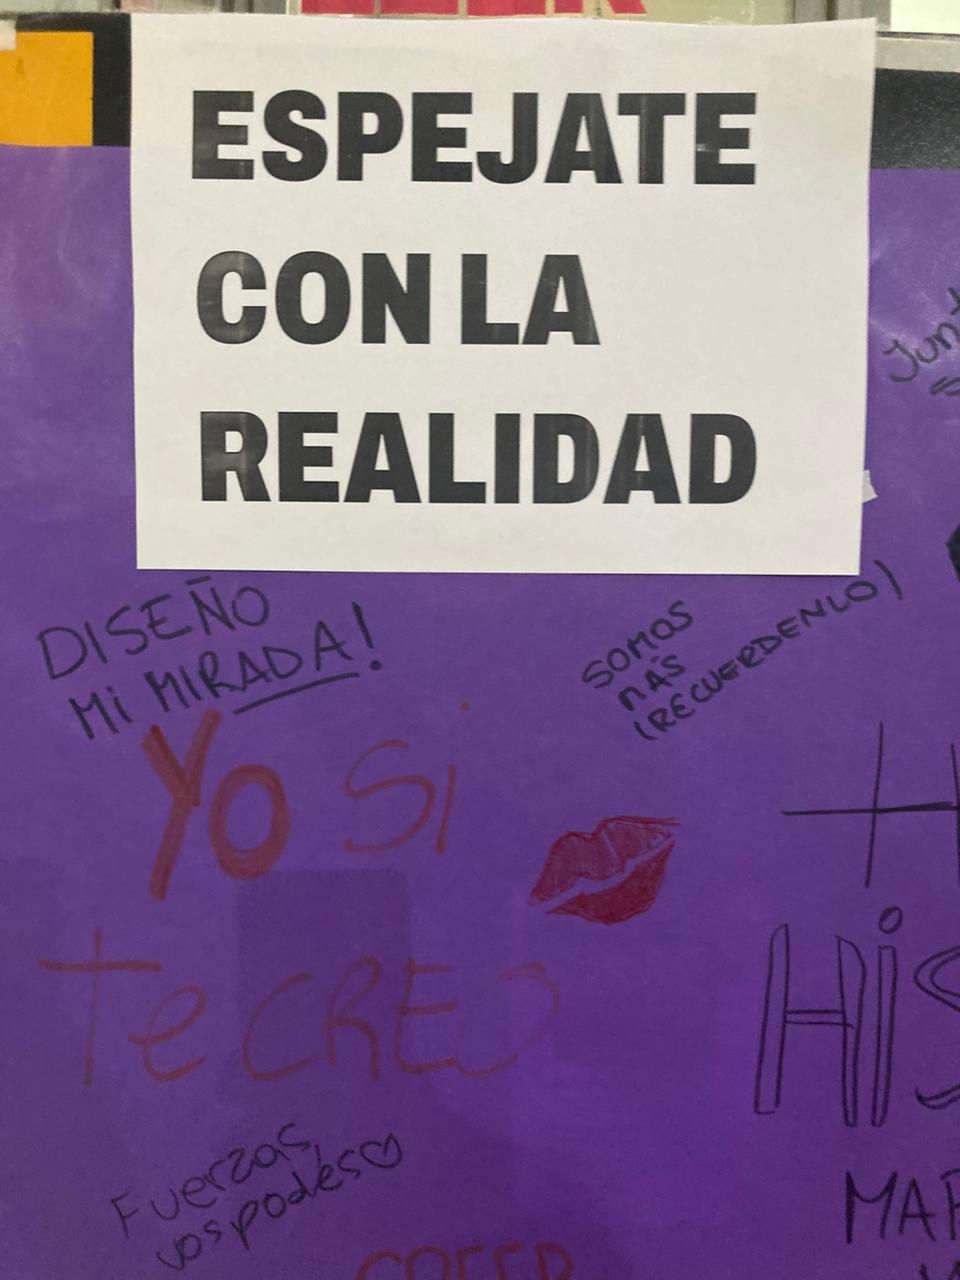 ESPEJATE
CON LA
REALIDAD
DISEÑO
Mi MIRADA!
SOMOS
MÁS
(RECUERDENLO)
Yo Si
Te CREO
HiS
MAR
Fuerzas,
vos podés♡